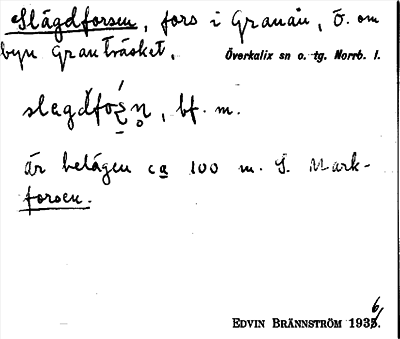 Slägdforsen, fors i Granån, Ö. om
byn Granträsket.
Överkalix sn o. tg. Norrb. l.
bf. m.
är belägen ca 100 m. S. Mark-
forsen.
EDVIN BRÄNNSTRÖM 1936.